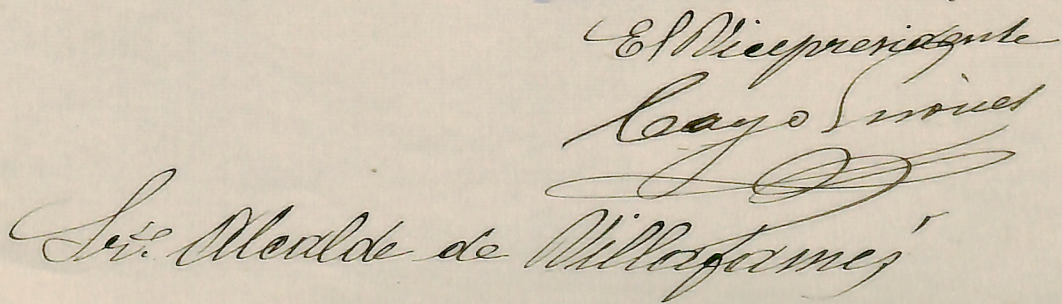 El Vicepresidente
Cayo Gironés
Sr. Alcalde de Villafamés